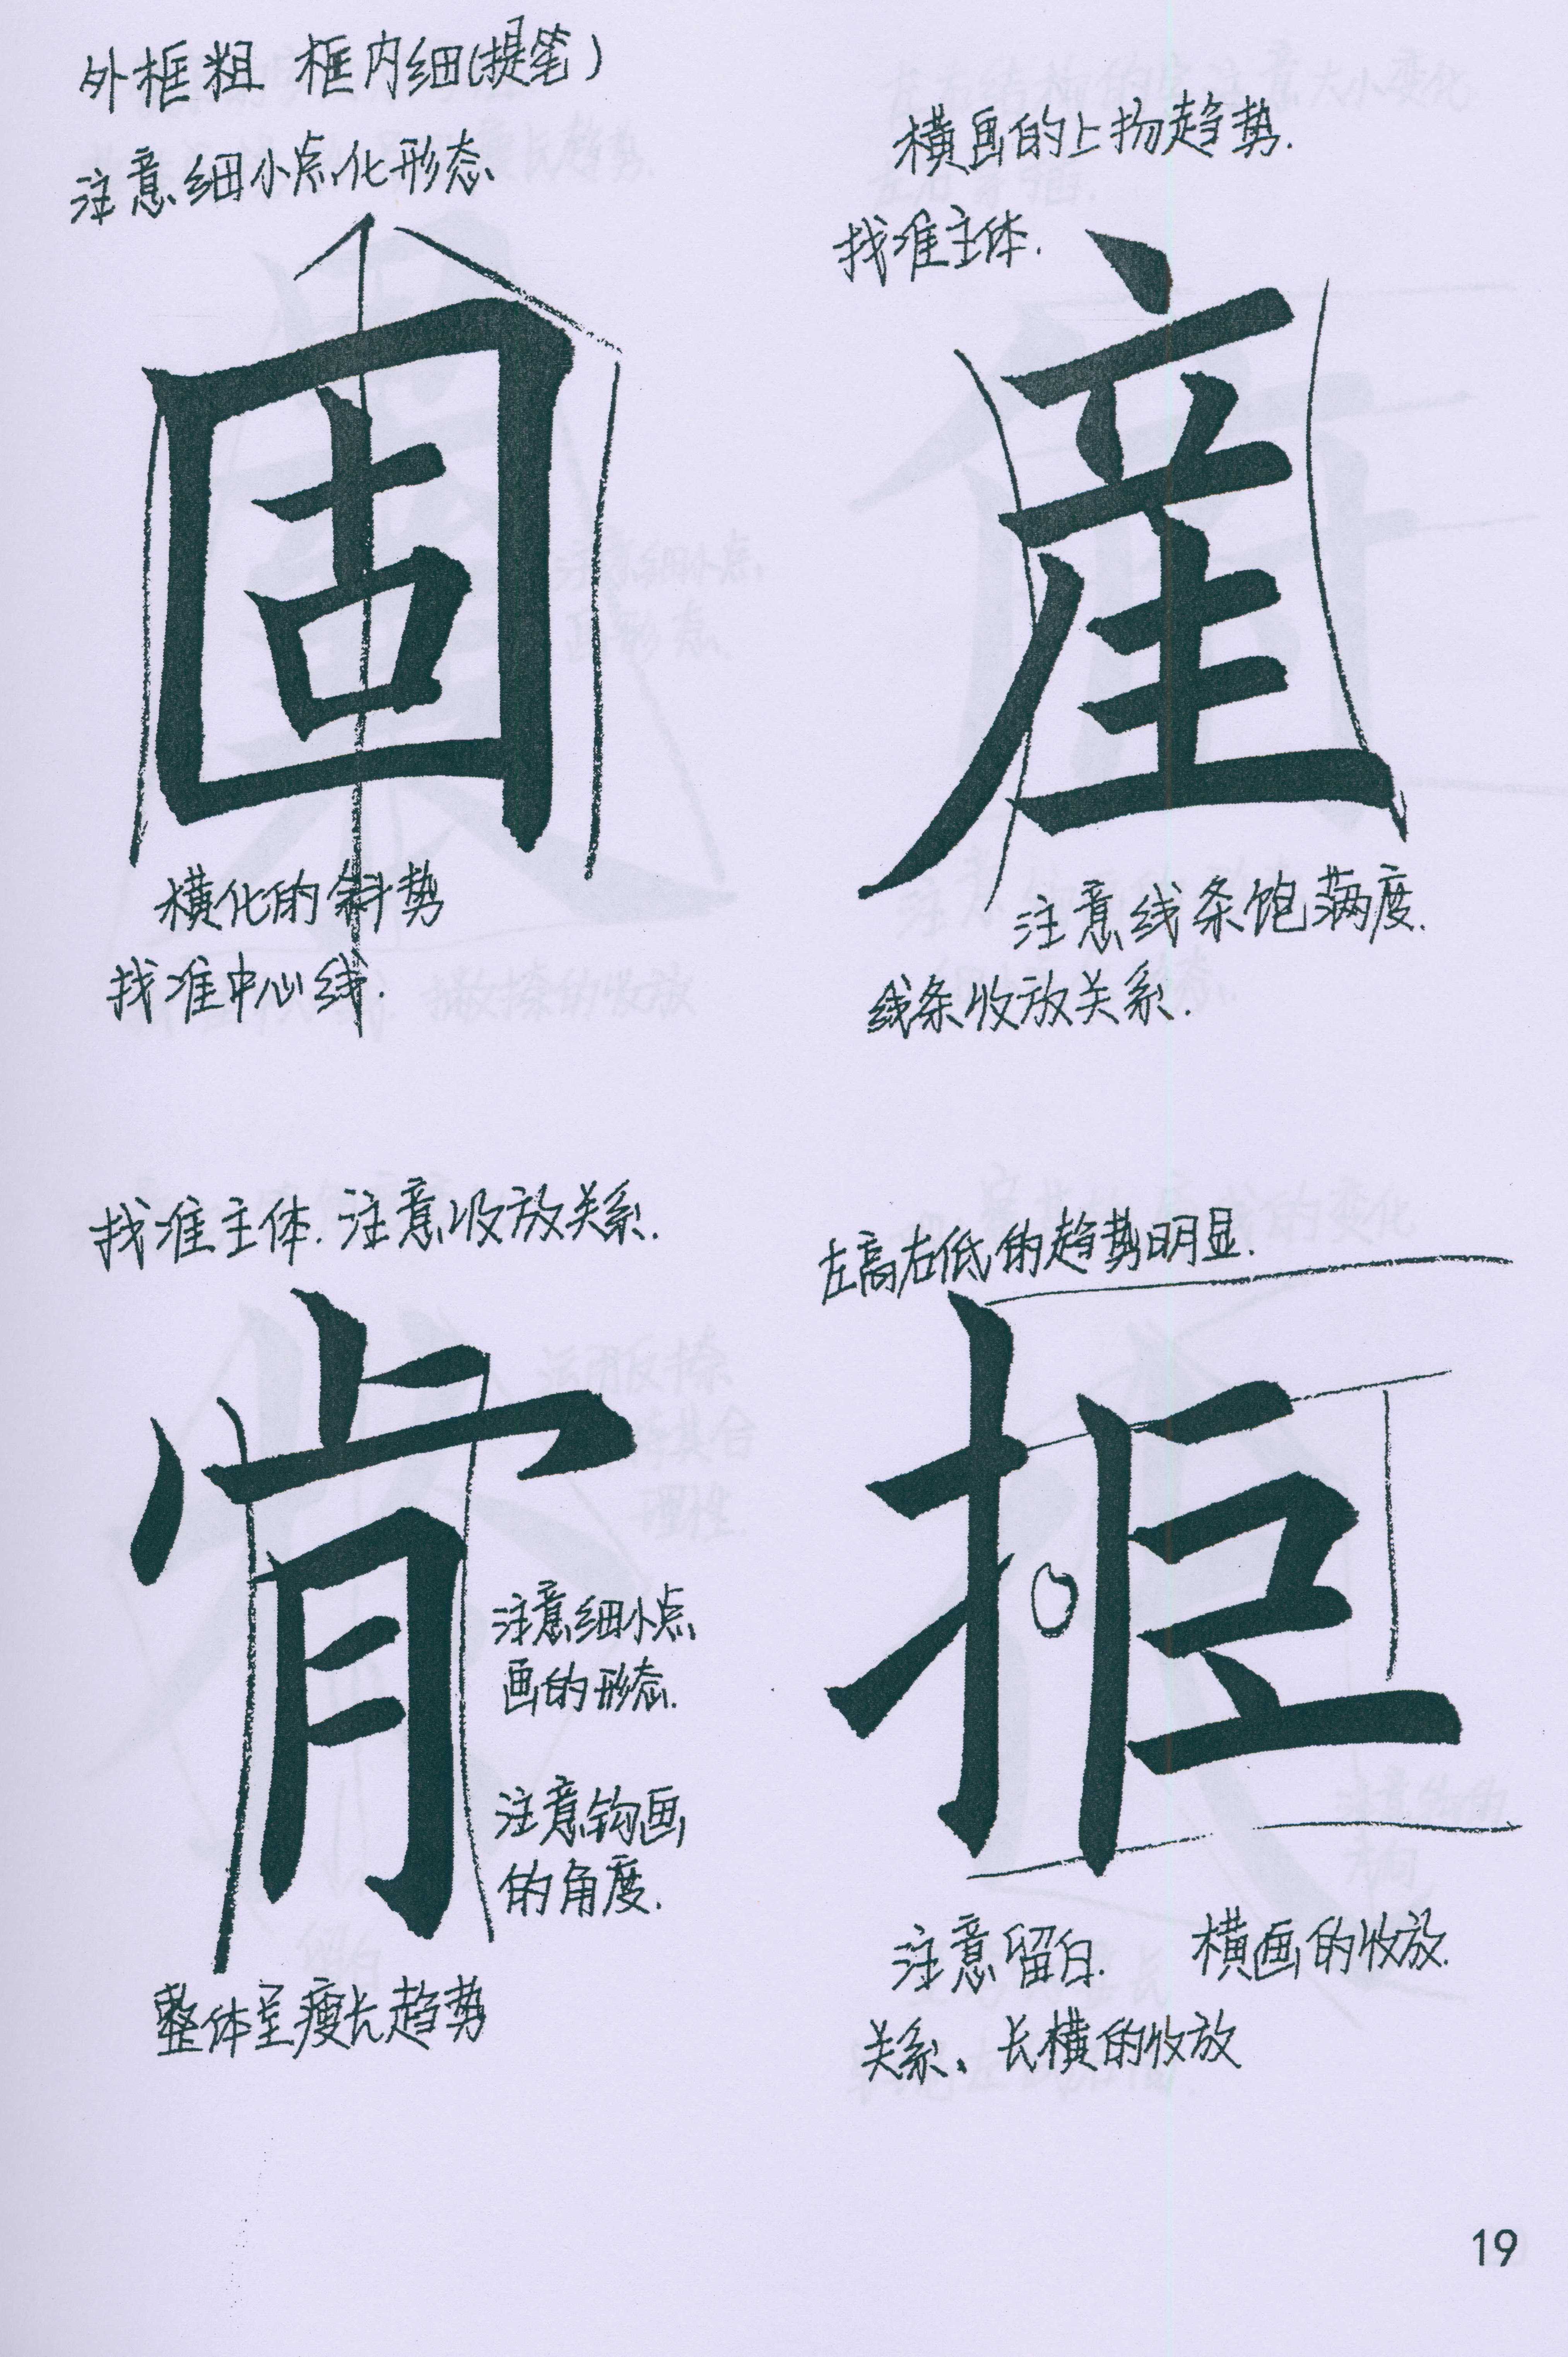 外框粗 框内细(提笔)
注意细小点化形态
固
横化的斜势
找准中心线.
横画的上扬趋势.
找准主体.
産
注意线条饱满度.
线条收放关系.
找准主体.注意收放关系.
肯
注意细小点
画的形态.
注意钩画
的角度.
整体呈瘦长趋势
左高右低的趋势明显.
拒
注意留白. 横画的收放.
关系、长横的收放
19